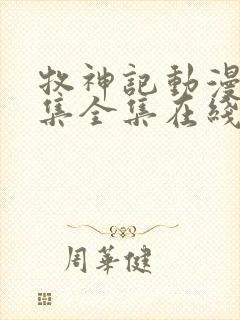 牧神記動漫
集全集在綫
周華健